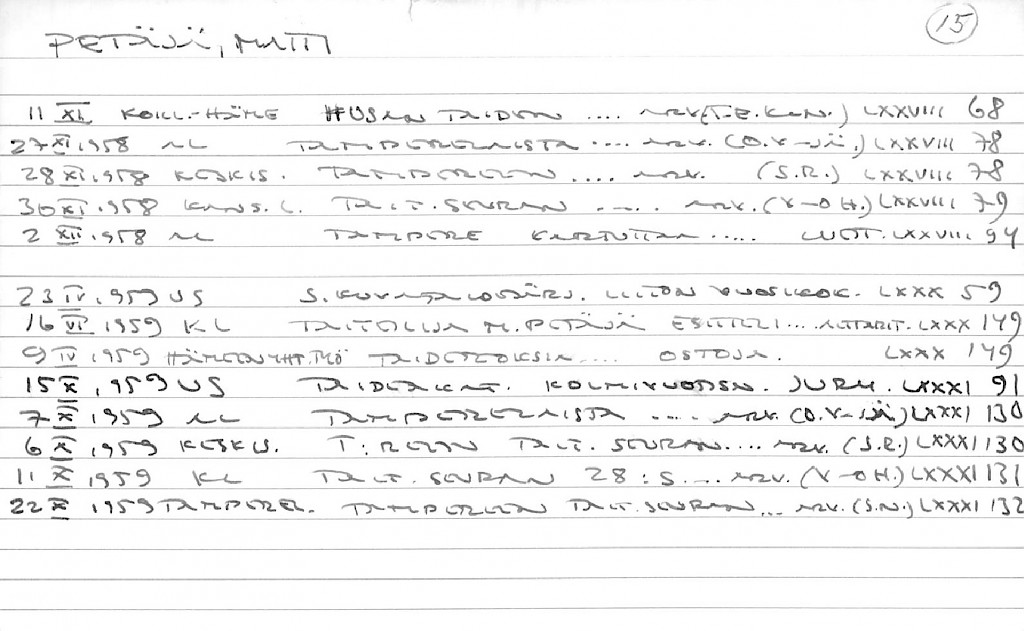 15
PETÄJÄ, MATTI
11 XI KOILL-HÄME ... TAIDEN .... ARV. LXXVIII 68
27 XI 1958 AL TAMPERELAISTA .... ARV. (O.V-JÄ.) LXXVIII 78
28 XI 1958 KESKIS. TAMPEREEN .... ARV. (S.R.) LXXVIII 78
30 XI 1958 KANS. L. TAIT. SEURAN ..... ARV. (V-O H.) LXXVIII 79
2 XII 1958 AL TAMPERE KARTUTTAA ..... LUETT. LXXVIII 94
23 IV 1959 US S. KUVATAIDEJÄRJ. LIITON VUOSIKOK. LXXX 59
16 VI 1959 KL TAITEILIJA M. PETÄJÄ ESITTELI ... ALTTARIT. LXXX 149
9 IV 1959 HÄMEEN YHT.TYÖ TAIDETEOKSIA .... OSTOJA. LXXX 149
15 X 1959 US TAIDEAKAT. KOLMIVUOTISN. JURY. LXXXI 91
7 XI 1959 AL TAMPERELAISTA .... ARV. (O.V-JÄ) LXXXI 130
6 X 1959 KESKIS. T:REEN TAIT. SEURAN .... ARV. (S.R.) LXXXI 130
11 X 1959 KL TAIT. SEURAN 28:S .... ARV. (V-O H.) LXXXI 131
22 X 1959 TAMPEREL. TAMPEREEN TAIT. SEURAN ... ARV. (S.N.) LXXXI 132